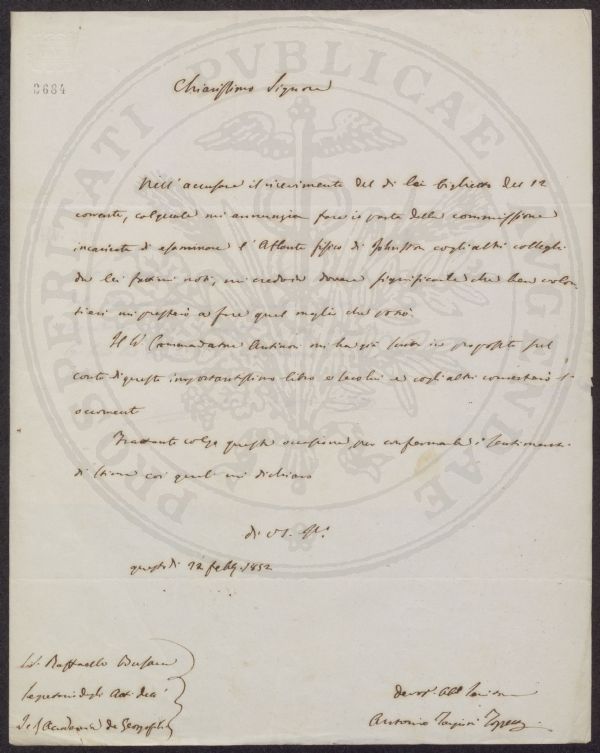 PROSPERITATI PVBLICAE AVGENDAE
0684
Chiarissimo Signore
Nell' accusare il ricevimento del di lei biglietto del 12
corrente, col quale mi annunzia fare io parte della commissione
incaricata di esaminare l' Atlante fisico di Johnston cogli altri colleghi
da lei fattimi noti, mi credo in dovere significarle che ben volon-
tieri mi presterò a fare quel meglio che potrò.
Il Sr. Commendatore Antinori mi ha già in proposito sul
conto di questo importantissimo libro e seco lui e cogli altri concerterò l'
occorrente
Frattanto colgo questa occasione per confermarle i sentimenti
di stima coi quali mi dichiaro
di VS. Ill.
questo dì 22 febb. 1852
Sr. Raffaello Busacca
Segretario degli Atti della
I. e R. Accademia dei Georgofili
Antonio Targioni Tozzetti